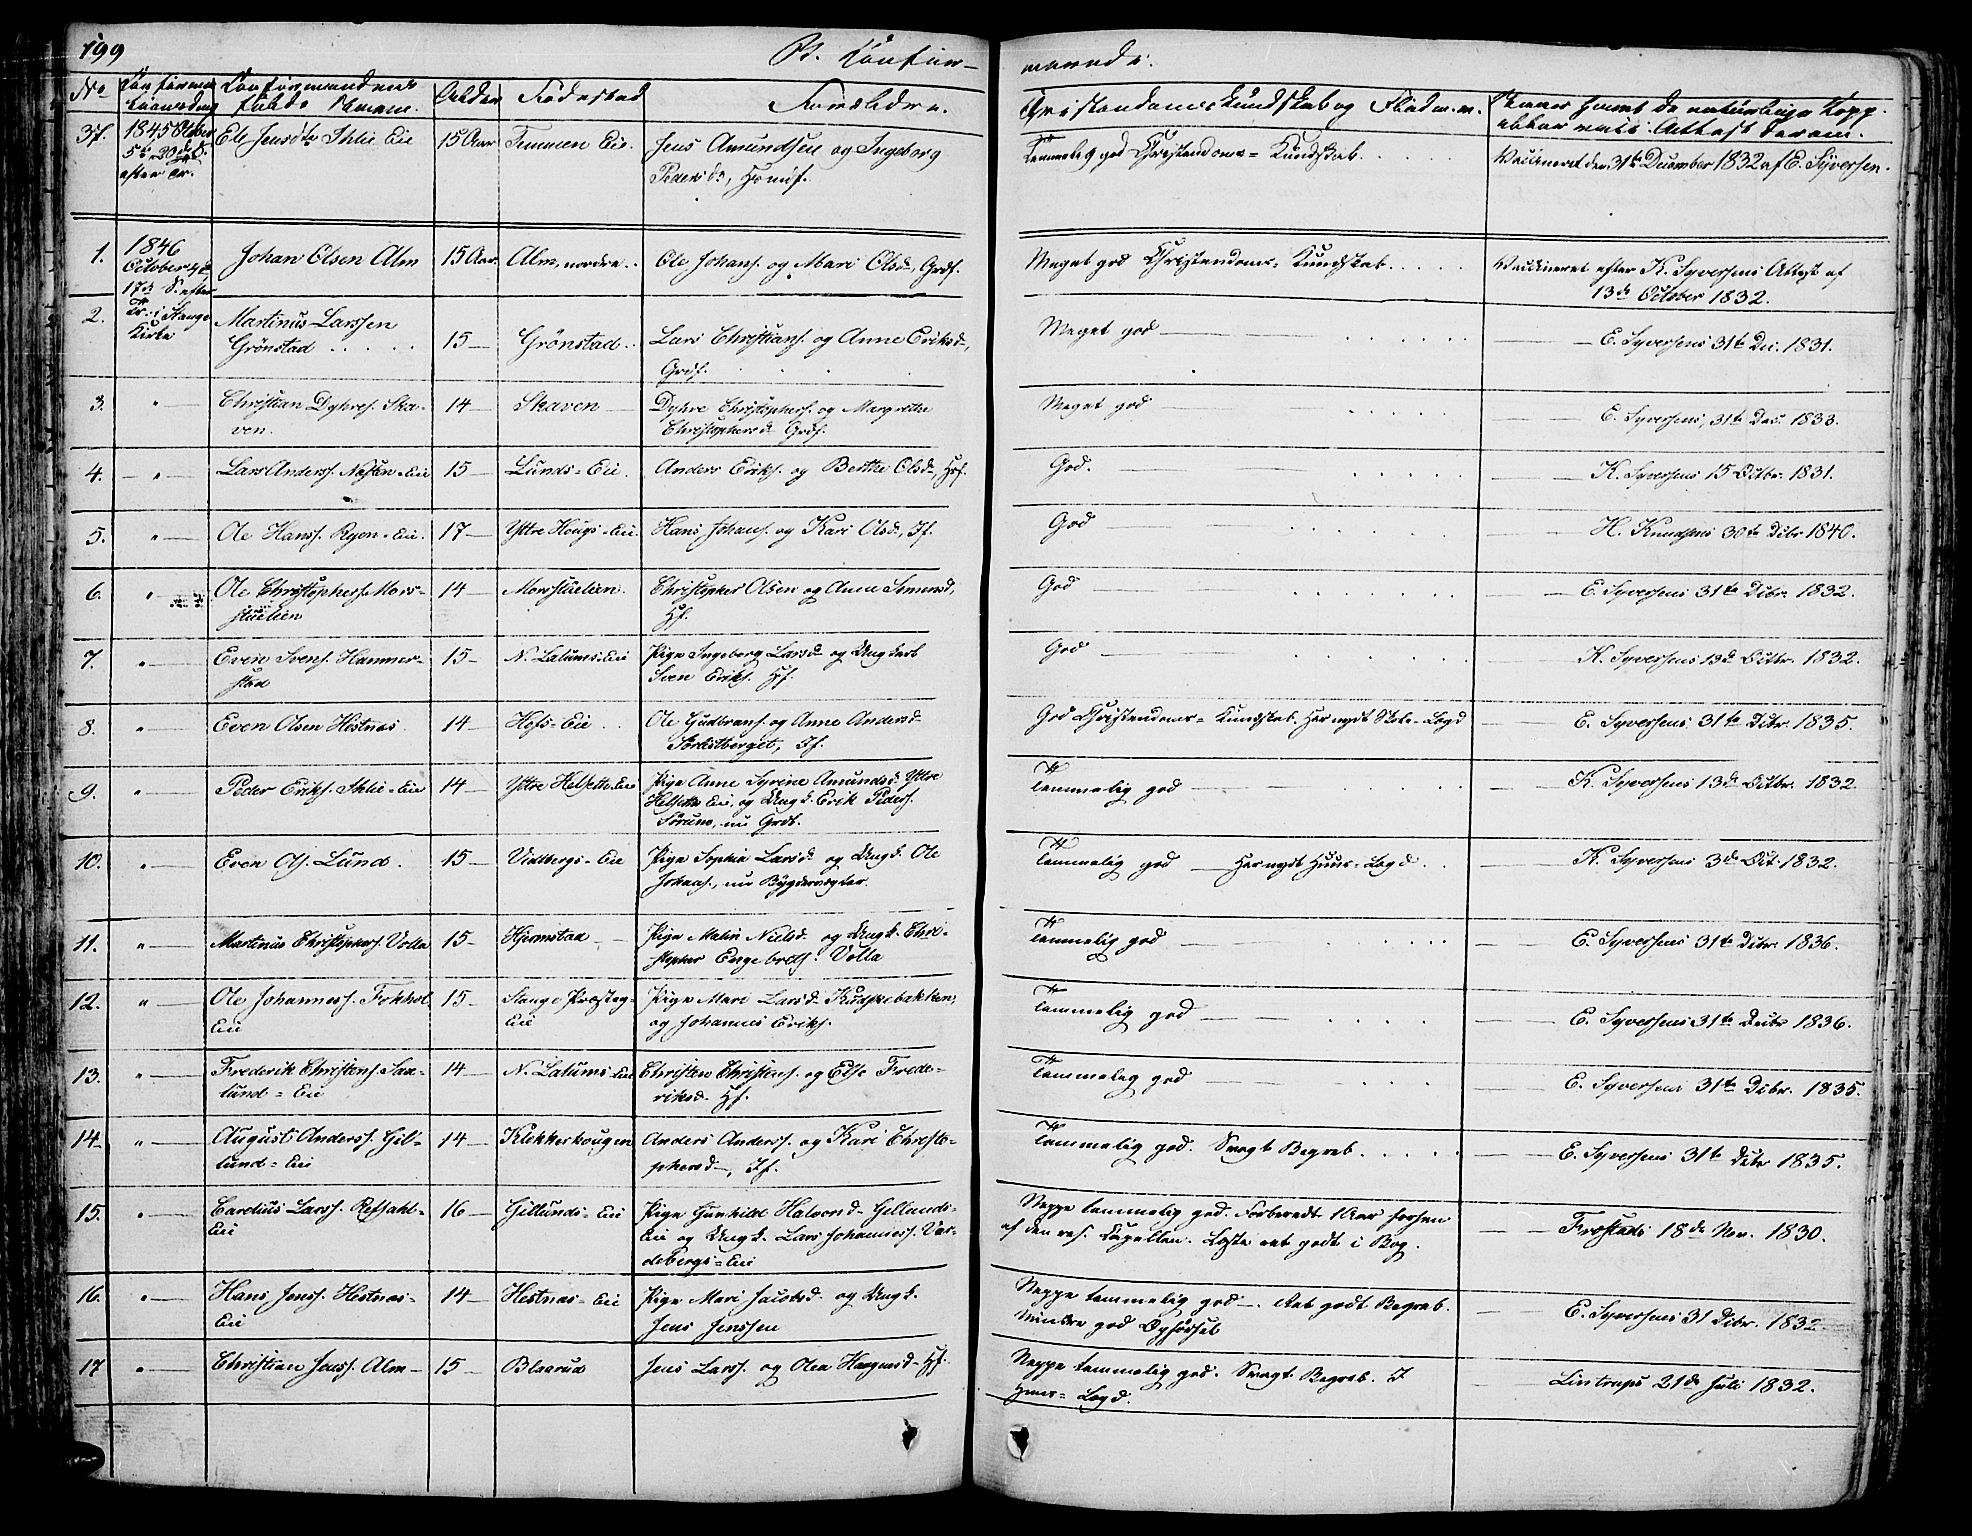 199
B. Confir-
merede.
No
Confirmandens
fulde Navn.
Alder
Fødested
Forældre.
Christendomskundskab og Flid m. m.
37.
1845 October
15 Aar
Jens Amundsen og Ingeborg
Pedersd.,
Temmelig god Christendoms-Kundskab.
Vaccineret den 31te December 1832 af E. Syversen.
1.
1846
October
Johan Olsen Alm
15 Aar
Alm, nordre
Ole Johans. og Mari Olsd., Grdf.
Meget god Christendoms-Kundskab.
Vaccineret efter K. Syversens Attest af
13de October 1832.
2.
i Stange
Kirke
Martinus Larssen
Grönstad
15
Grönstad
Lars Christians. og Anne Eriksd.,
Grdf.
Meget god
E. Syversens 31te Dec. 1831.
3.
"
Christian Dyhres. Ska-
ven.
14
Skaven
Dyhre Christophers. og Margrethe
Christophersd. Grdf.
Meget god
E. Syversens, 31te Dec. 1833.
4.
"
Lars Anderss. Næsten-Eie
15
Lunds-Eie
Anders Eriks. og Berthe Olsd., Hf.
God.
K. Syversens 15 Octbr. 1831.
5.
"
Ole Hanss. Ryen-Eie.
17
Yttre Hougs-Eie
Hans Johans. og Kari Olsd., If.
God
H. Knudsens 30te Dcbr 1840.
6.
"
Ole Christophers. Mors-
stuelien
14
Morsstuelien.
Christopher Olsen og Anne Simensd.,
Hf.
God
E. Syversens 31te Dcbr. 1832.
7.
"
Even Svens. Hammer-
stad
15
N. Lalums-Eie
Pige Ingeborg Larsd. og Ungkarl
Sven Eriks. Hf.
God
K. Syversens 13de Octbr. 1832.
8.
"
Even Olsen Hestnæs
14
Hofs-Eie
Ole Gudbrans. og Anne Andersd.
If.
God Christendoms-Kundskab. Har nydt Skole-Lægd
E. Syversens 31te Dcbr. 1835.
9.
"
Peder Eriks. Ihle-Eie
14
Yttre Helseth-Eie
Pige Anne Syrine Amundsd. Yttre
Helseth-Eie, og Ungk. Erik Peders.
Sörum, nu Grdb.
Temmelig god
K. Syversens 13de Octbr. 1832.
10.
"
Even Ols. Lund.
15
Vidbergs-Eie
Pige Sophie Larsd. og Ungk. Ole
Johans., nu Bygdevægter.
Temmelig god Har nydt Huus-Lægd.
K. Syversens 3de Oct. 1832.
11.
"
Martinus Christophers. Volla
15
Hjermstad
Pige Malin Nielsd. og Ungk. Chri-
stopher Engebrets. Volla
Temmelig god
E. Syversens 31te Dcbr. 1836.
12.
"
Ole Johanness. Fokhol
Eie
15
Stange Præsteg.
Eie
Pige Mari Larsd. Kudskebakken,
og Johannes Eriks.
Temmelig god
E. Syversens 31te Decbr 1836.
13.
"
Frederik Christens. Saa-
lund-Eie
14
N. Lalums-Eie
Christen Christens. og Else Frede-
riksd. Hf.
Temmelig god
E. Syversens 31te Dcbr. 1835.
14
"
August Anderss. Gil-
lund-Eie
14
Klokkerhougen
Anders Anderss. og Kari Christo-
phersd., If.
Temmelig god. Svagt Begreb.
E. Syversens 31te Dcbr 1835.
15.
"
Carelius Larss. Refsahl-
Eie
16
Gillunds-Eie
Pige Gunhild Halvorsd. Gillunds-
Eie og Ungk. Lars Johanness. Var-
debergs-Eie
Neppe temmelig god. Forberedt 1 Aar forhen
af den res. Capellan. Læste ret godt i Bog.
Frostads 18de Nov. 1830.
16.
"
Hans Jenss. Hestnæs-
Eie
14
Hestnæs-Eie
Pige Mari Jacobsd. og Ungk.
Jens Jenssen
Neppe temmelig god. Ret godt Begreb.
Mindre god Opförsel
E. Syversens 31 Dcbr. 1832
17
"
Christian Jenss. Alm
15
Blaarud
Jens Larss. og Olea Haagensd. Hf.
Neppe temmelig god. Svagt Begreb. I
Huus-Lægd.
Lintrups 21de Juli 1832.